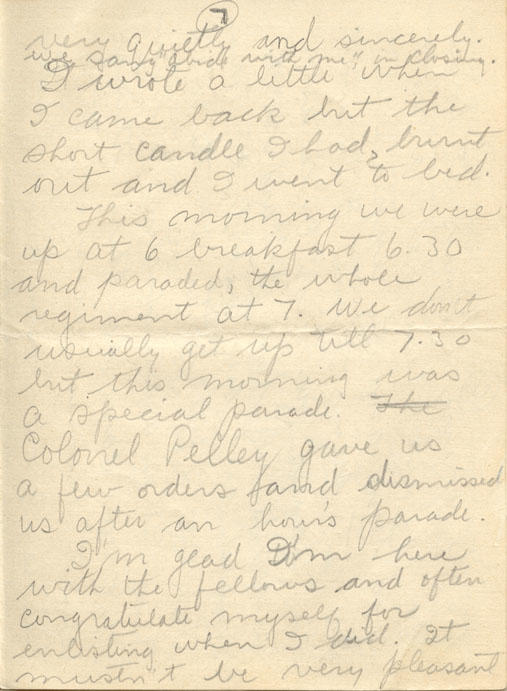 7
very quietly and sincerely.
We sang "abide with me", in closing.
I wrote a little when
I came back but the
short candle I had, burnt
out and I went to bed.
This morning we were
up at 6 breakfast 6.30
and paraded, the whole
regiment at 7. We don't
usually get up till 7.30
but this morning was
a special parade. The
Colonel Pelley gave us
a few orders and dismissed
us after an hour's parade.
I'm glad I'm here
with the fellows and often
congratulate myself for
enlisting when I did. It
mustn't be very pleasant